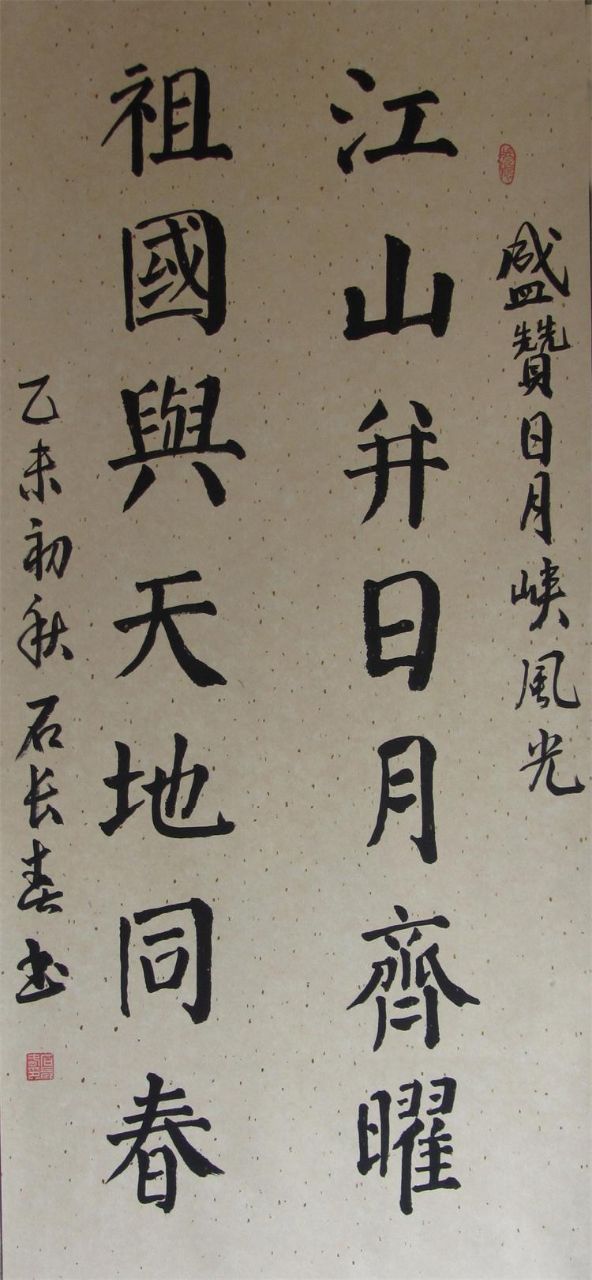 盛贊日月峽風光
江山并日月齊曜
祖國與天地同春
乙未初秋石长春书